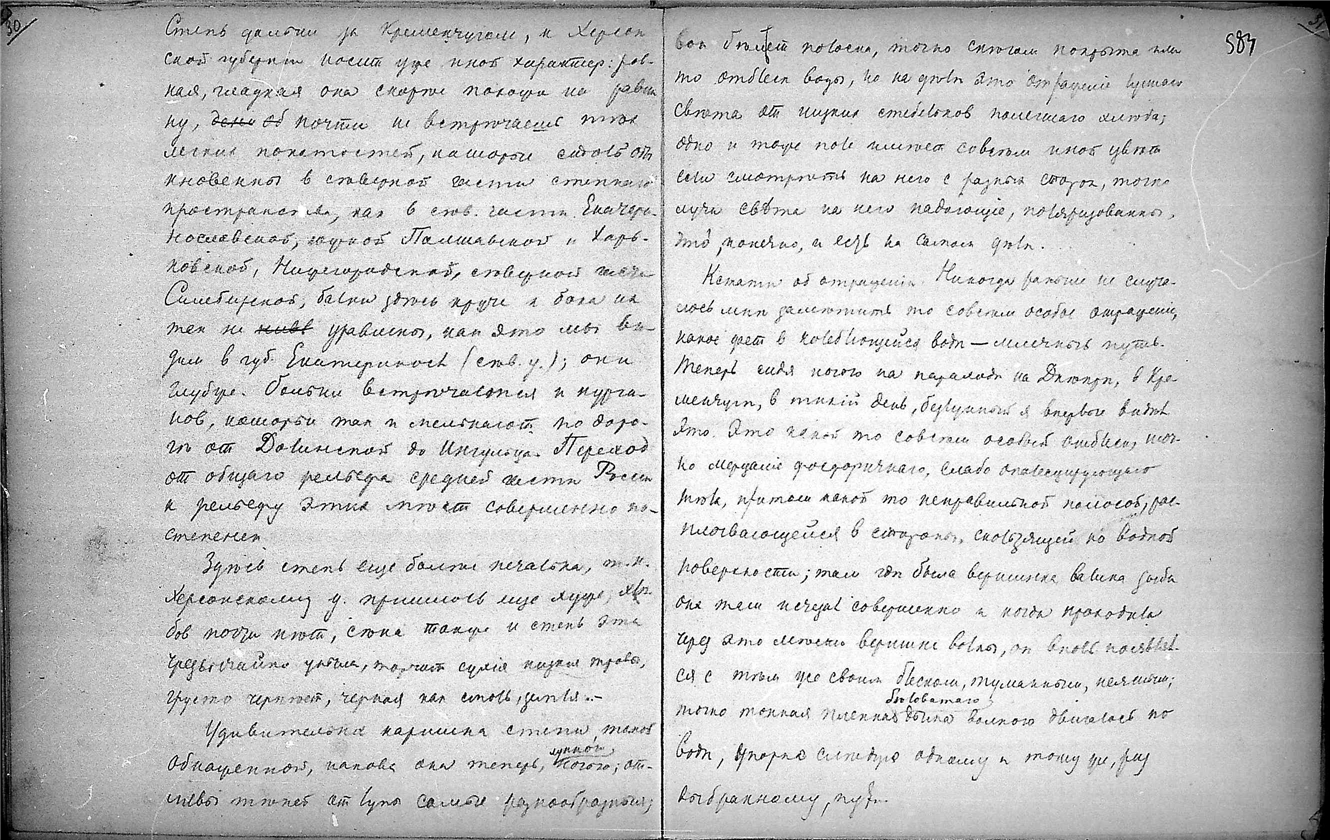 30
Степь дальше за Кременчугом, в Херсон
ской губернии носит уже иной характер: ров-
ная, гладкая она скорее похожа на равни
ну, почти не встречаешь тех
легких покатостей, которые столь обы
кновенны в северной части степного
пространства, как в сев. части Екатери-
нославской, южной Полтавской и Харь-
ковской, Нижегородской, северной части
Симбирской, балки здесь круче и бока их
тек не уравлены, как это мы ви-
дим в губ. Екатеринос (сев. у.); они
глубже. Больше встречается и курга-
нов, которые так и мелькают по доро-
ге от Долинской до Ингульца. Переход
от общаго рельефа средней части России
к рельефу этих мест совершенно по-
степенен
Здесь степь еще более печальна, т. к.
Херсонскому у. пришлось еще хуже, хле-
бов почти нет, сена также и степь эта
чрезвычайно уныла, торчат сухия низкия травы,
грустно чернеет, черная как смоль, земля. —
Удивительна картина степи, такой
обнаженной, какова она теперь, лунной ночью; от-
ливы тянет от луны самые разнообразные;
583
вон белеет полоска, точно снегом покрыта или
то отблеск воды, но на деле это отражение луннаго
света от низких стебельков полегшаго хлеба;
одно и тоже поле имеет совсем иной цвет
если смотреть на него с разных сторон, точно
лучи свѣта на него падающие, поляризованны.
Это, конечно, и есть на самом деле.
Кстати об отражении. Никогда раньше не случа-
лось мне заметить то совсем особое отражение,
какое дает в колеблющейся воде — млечный путь.
Теперь сидя ночью на пароходе на Днепре, в Кре-
менчуге, в тихий день, безлунный я впервые видел
это. Это какой то совсем особый отблеск, точ-
но мерцание фосфоричнаго, слабо опалесцирующаго
тела, притом какой то неправильной полосой, рас-
плывающейся в стороны, скользящей по водной
поверхности; там где была вершинка валика зыби
она там исчезал совершенно и когда проходила
чрез это место вершинка волны, он вновь появлял-
ся с тем же своим блеском, туманным, неясным;
точно тонкая пленка беловатаго дыма волного двигалась по
воде, упорно следуя одному и тому же, раз
выбранному, пути.